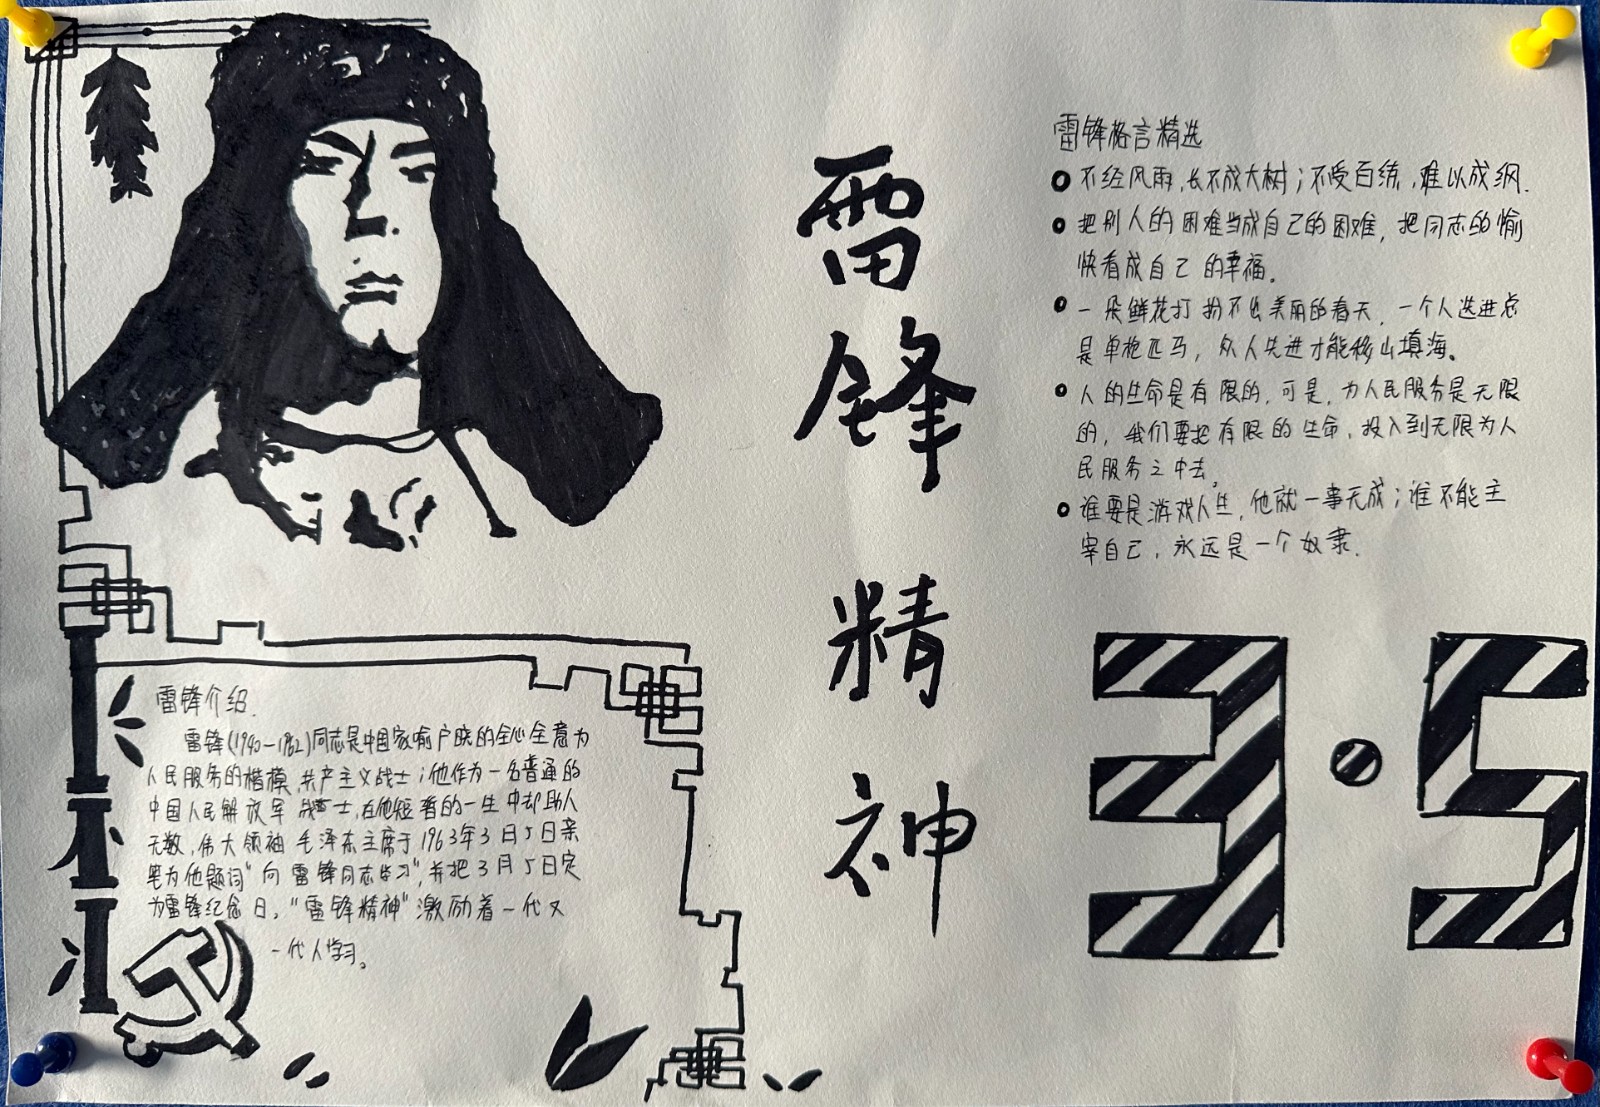 雷锋精神
雷锋格言精选
不经风雨,长不成大树;不受百练,难以成纲.
把别人的困难当成自己的困难,把同志的愉
快看成自己的幸福。
一朵鲜花打扮不出美丽的春天,一个人先进总
是单枪匹马,众人先进才能移山填海。
人的生命是有限的,可是,为人民服务是无限
的,我们要把有限的生命,投入到无限为人
民服务之中去。
谁要是游戏人生,他就一事无成;谁不能主
宰自己,永远是一个奴隶.
3·5
雷锋介绍.
雷锋(1940-1962)同志是中国家喻户晓的全心全意为
人民服务的楷模,共产主义战士;他作为一名普通的
中国人民解放军战士,在他短暂的一生中却助人
无数,伟大领袖毛泽东主席于1963年3月5日亲
笔为他题词"向雷锋同志学习",并把3月5日定
为雷锋纪念日。"雷锋精神"激励着一代又
一代人学习。